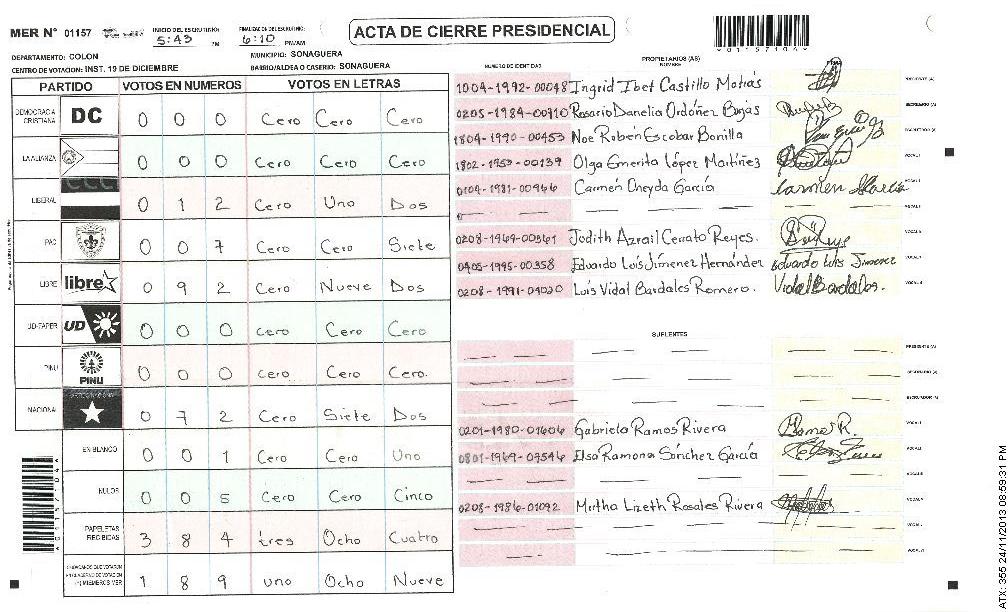 MER N° 01157
INICIO DEL ESCRUTINIO: 5:43 PM
FINALIZACION DEL ESCRUTINIO: 6:10 PM/AM
ACTA DE CIERRE PRESIDENCIAL
DEPARTAMENTO: COLON
MUNICIPIO: SONAGUERA
CENTRO DE VOTACION: INST. 19 DE DICIEMBRE
BARRIO/ALDEA O CASERIO: SONAGUERA
PARTIDO VOTOS EN NUMEROS VOTOS EN LETRAS
DEMOCRACIA CRISTIANA DC 0 0 0 Cero Cero Cero
LA ALIANZA 0 0 0 Cero Cero Cero
LIBERAL 0 1 2 Cero Uno Dos
PAC 0 0 7 Cero Cero Siete
LIBRE libre 0 9 2 Cero Nueve Dos
UD-FAPER UD 0 0 0 Cero Cero Cero
PINU PINU 0 0 0 Cero Cero Cero.
NACIONAL 0 7 2 Cero Siete Dos
EN BLANCO 0 0 1 Cero Cero Uno
NULOS 0 0 5 Cero Cero Cinco
PAPELETAS RECIBIDAS 3 8 4 tres Ocho Cuatro
1 8 9 uno Ocho Nueve
PROPIETARIOS (AS)
NUMERO DE IDENTIDAD NOMBRE
1004-1992-00048 Ingrid Ibet Castillo Matias PRESIDENTE (A)
0205-1984-00910 Rosario Danelia Ordóñez Bojas SECRETARIO (A)
1804-1990-00453 Noe Robén Escobar Bonilla ESCRUTADOR (A)
1802-1953-00139 Olga Emerita López Martíñez VOCAL I
0104-1981-00966 Carmen Oneyda García Carmen Garcia
0208-1969-00361 Judith Azrail Cerrato Reyes.
0405-1995-00358 Eduardo Luis Jímenez Hernández Eduardo Luis Jimenez
0208-1991-01020 Luis Vidal Bardales Romero. Vidal Bardales.
SUPLENTES
PRESIDENTE (A)
SECRETARIO (A)
ESCRUTADOR (A)
0201-1980-01606 Gabriela Ramos Rivera Ramos R. VOCAL I
0801-1969-07546 Elsa Ramona Sánchez García
0208-1986-01092 Mirtha Lizeth Rosales Rivera
ATX: 355 24/11/2013 08:59:31 PM